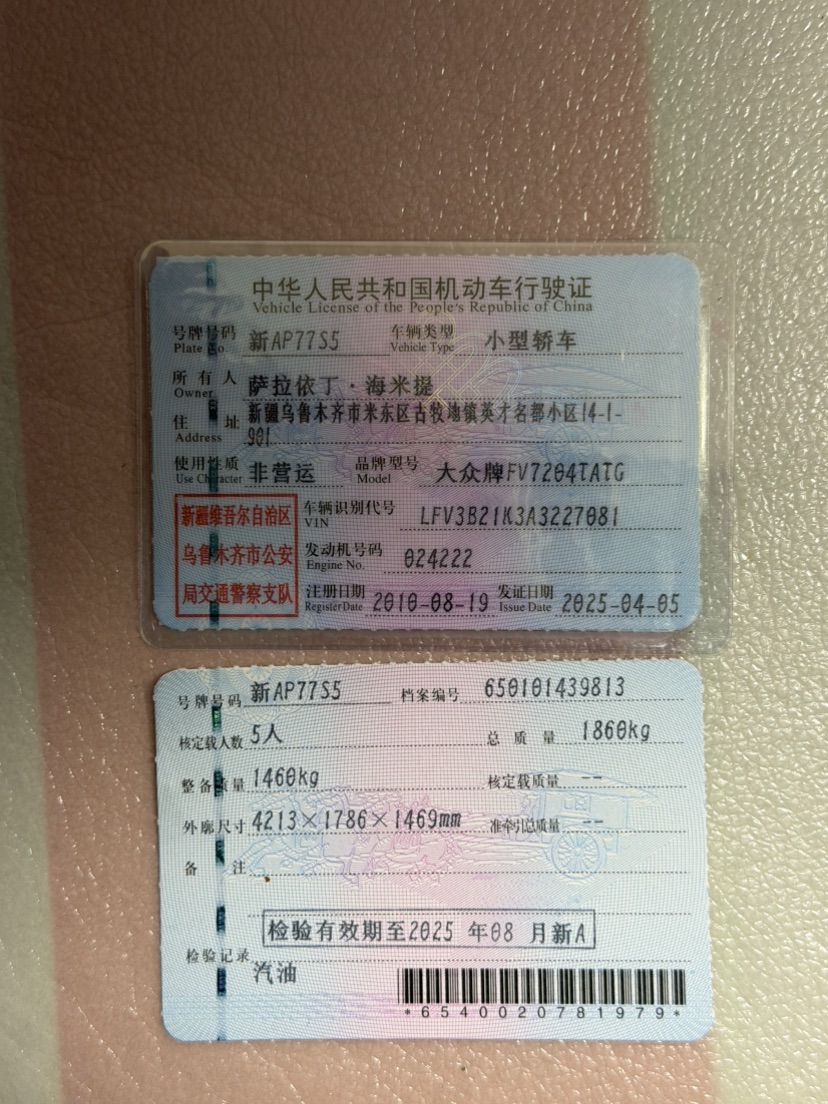 中华人民共和国机动车行驶证
Vehicle License of the People's Republic of China
号牌号码 新AP77S5 车辆类型 小型轿车
Plate No. Vehicle Type
所有人 萨拉依丁·海米提
Owner
住址 新疆乌鲁木齐市米东区古牧地镇英才名都小区14-1-
Address 901
使用性质 非营运 品牌型号 大众牌FV7204TATG
Use Character Model
新疆维吾尔自治区
乌鲁木齐市公安
局交通警察支队
车辆识别代号 LFV3B21K3A3227081
VIN
发动机号码 024222
Engine No.
注册日期 2010-08-19 发证日期 2025-04-05
Register Date Issue Date
号牌号码 新AP77S5 档案编号 650101439813
核定载人数 5人 总质量 1860kg
整备质量 1460kg 核定载质量 --
外廓尺寸 4213×1786×1469mm 准牵引总质量 --
备注
检验有效期至2025 年08 月新A
检验记录
汽油
*6540020781979*